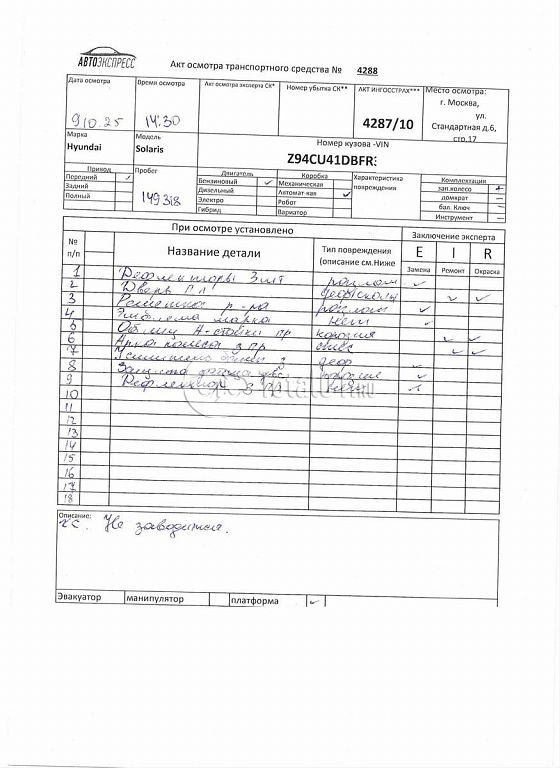 АВТОЭКСПРЕСС
Акт осмотра транспортного средства № 4288
Дата осмотра Время осмотра Акт осмотра эксперта СК* Номер убытка СК** АКТ ИНГОССТРАХ*** Место осмотра:
г. Москва,
ул.
Стандартная д.6,
стр.17
9 10.25 14:30 4287/10
Марка Модель Номер кузова -VIN
Hyundai Solaris Z94CU41DBFR
Привод Пробег Двигатель Коробка Характеристика повреждения Комплектация
Передний ✓ Бензиновый ✓ Механическая зап.колесо +
Задний Дизельный Автомат-кая ✓ домкрат –
Полный 149318 Электро Робот бал. Ключ –
Гибрид Вариатор Инструмент –
При осмотре установлено Заключение эксперта
№ п/п Название детали Тип повреждения (описание см.Ниже E I R
Замена Ремонт Окраска
1 Дефлекторы 3 шт разлом ✓
2 Дверь ✓ ✓
3 Решетка р-ра разлом ✓
4 Эмблема марка нет ✓
5 Облиц А-стойки пр ✓ ✓
6 Арка колеса з пр ✓ ✓
7 Усилитель з деф ✓
8 Защита ✓
9 Дефлектор
10
11
12
13
14
15
16
17
18
Описание:
х.с. Не заводится.
Эвакуатор манипулятор платформа ✓